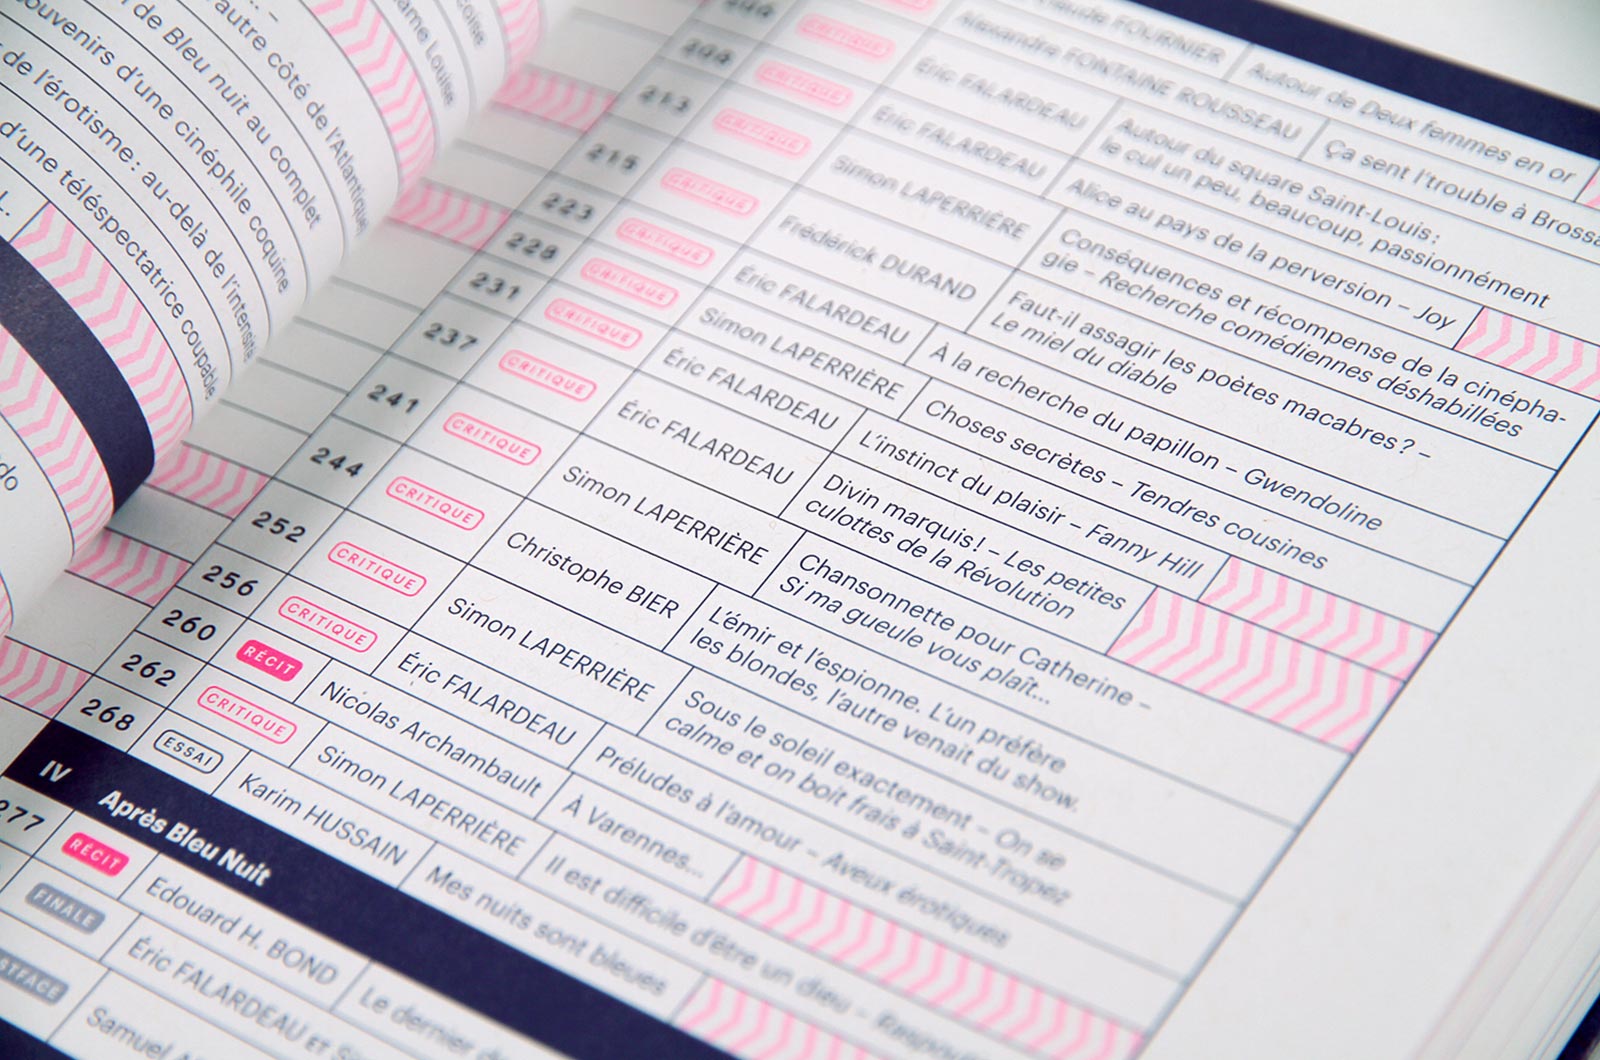 l'autre côté de l'Atlantique
de Bleu nuit au complet
ouvenirs d'une cinéphile coquine
de l'érotisme : au-delà de l'intensité
d'une téléspectatrice coupable
ame Louise
L.
FOURNIER Autour de Deux femmes en or
Alexandre FONTAINE ROUSSEAU Ça sent l'trouble à Brossa
CRITIQUE Éric FALARDEAU Autour du square Saint-Louis :
le cul un peu, beaucoup, passionnément
209 CRITIQUE Éric FALARDEAU Alice au pays de la perversion – Joy
213 CRITIQUE Simon LAPERRIÈRE Conséquences et récompense de la cinépha-
gie – Recherche comédiennes déshabillées
215 CRITIQUE Frédérick DURAND Faut-il assagir les poètes macabres ? –
Le miel du diable
223 CRITIQUE Éric FALARDEAU À la recherche du papillon – Gwendoline
228 CRITIQUE Simon LAPERRIÈRE Choses secrètes – Tendres cousines
231 CRITIQUE Éric FALARDEAU L'instinct du plaisir – Fanny Hill
237 CRITIQUE Éric FALARDEAU Divin marquis ! – Les petites
culottes de la Révolution
241 CRITIQUE Simon LAPERRIÈRE Chansonnette pour Catherine –
Si ma gueule vous plaît...
244 CRITIQUE Christophe BIER L'émir et l'espionne. L'un préfère
les blondes, l'autre venait du show.
252 CRITIQUE Simon LAPERRIÈRE Sous le soleil exactement – On se
calme et on boit frais à Saint-Tropez
256 CRITIQUE Éric FALARDEAU Préludes à l'amour – Aveux érotiques
260 RÉCIT Nicolas Archambault À Varennes...
262 CRITIQUE Simon LAPERRIÈRE Il est difficile d'être un dieu –
268 ESSAI Karim HUSSAIN Mes nuits sont bleues
IV Après Bleu Nuit
277 RÉCIT Edouard H. BOND Le dernier
FINALE Éric FALARDEAU ET
STFACE Samuel